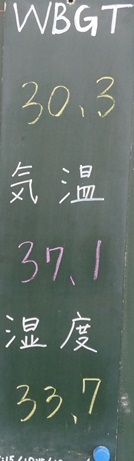 WBGT
30.3
気温
37.1
湿度
33.7